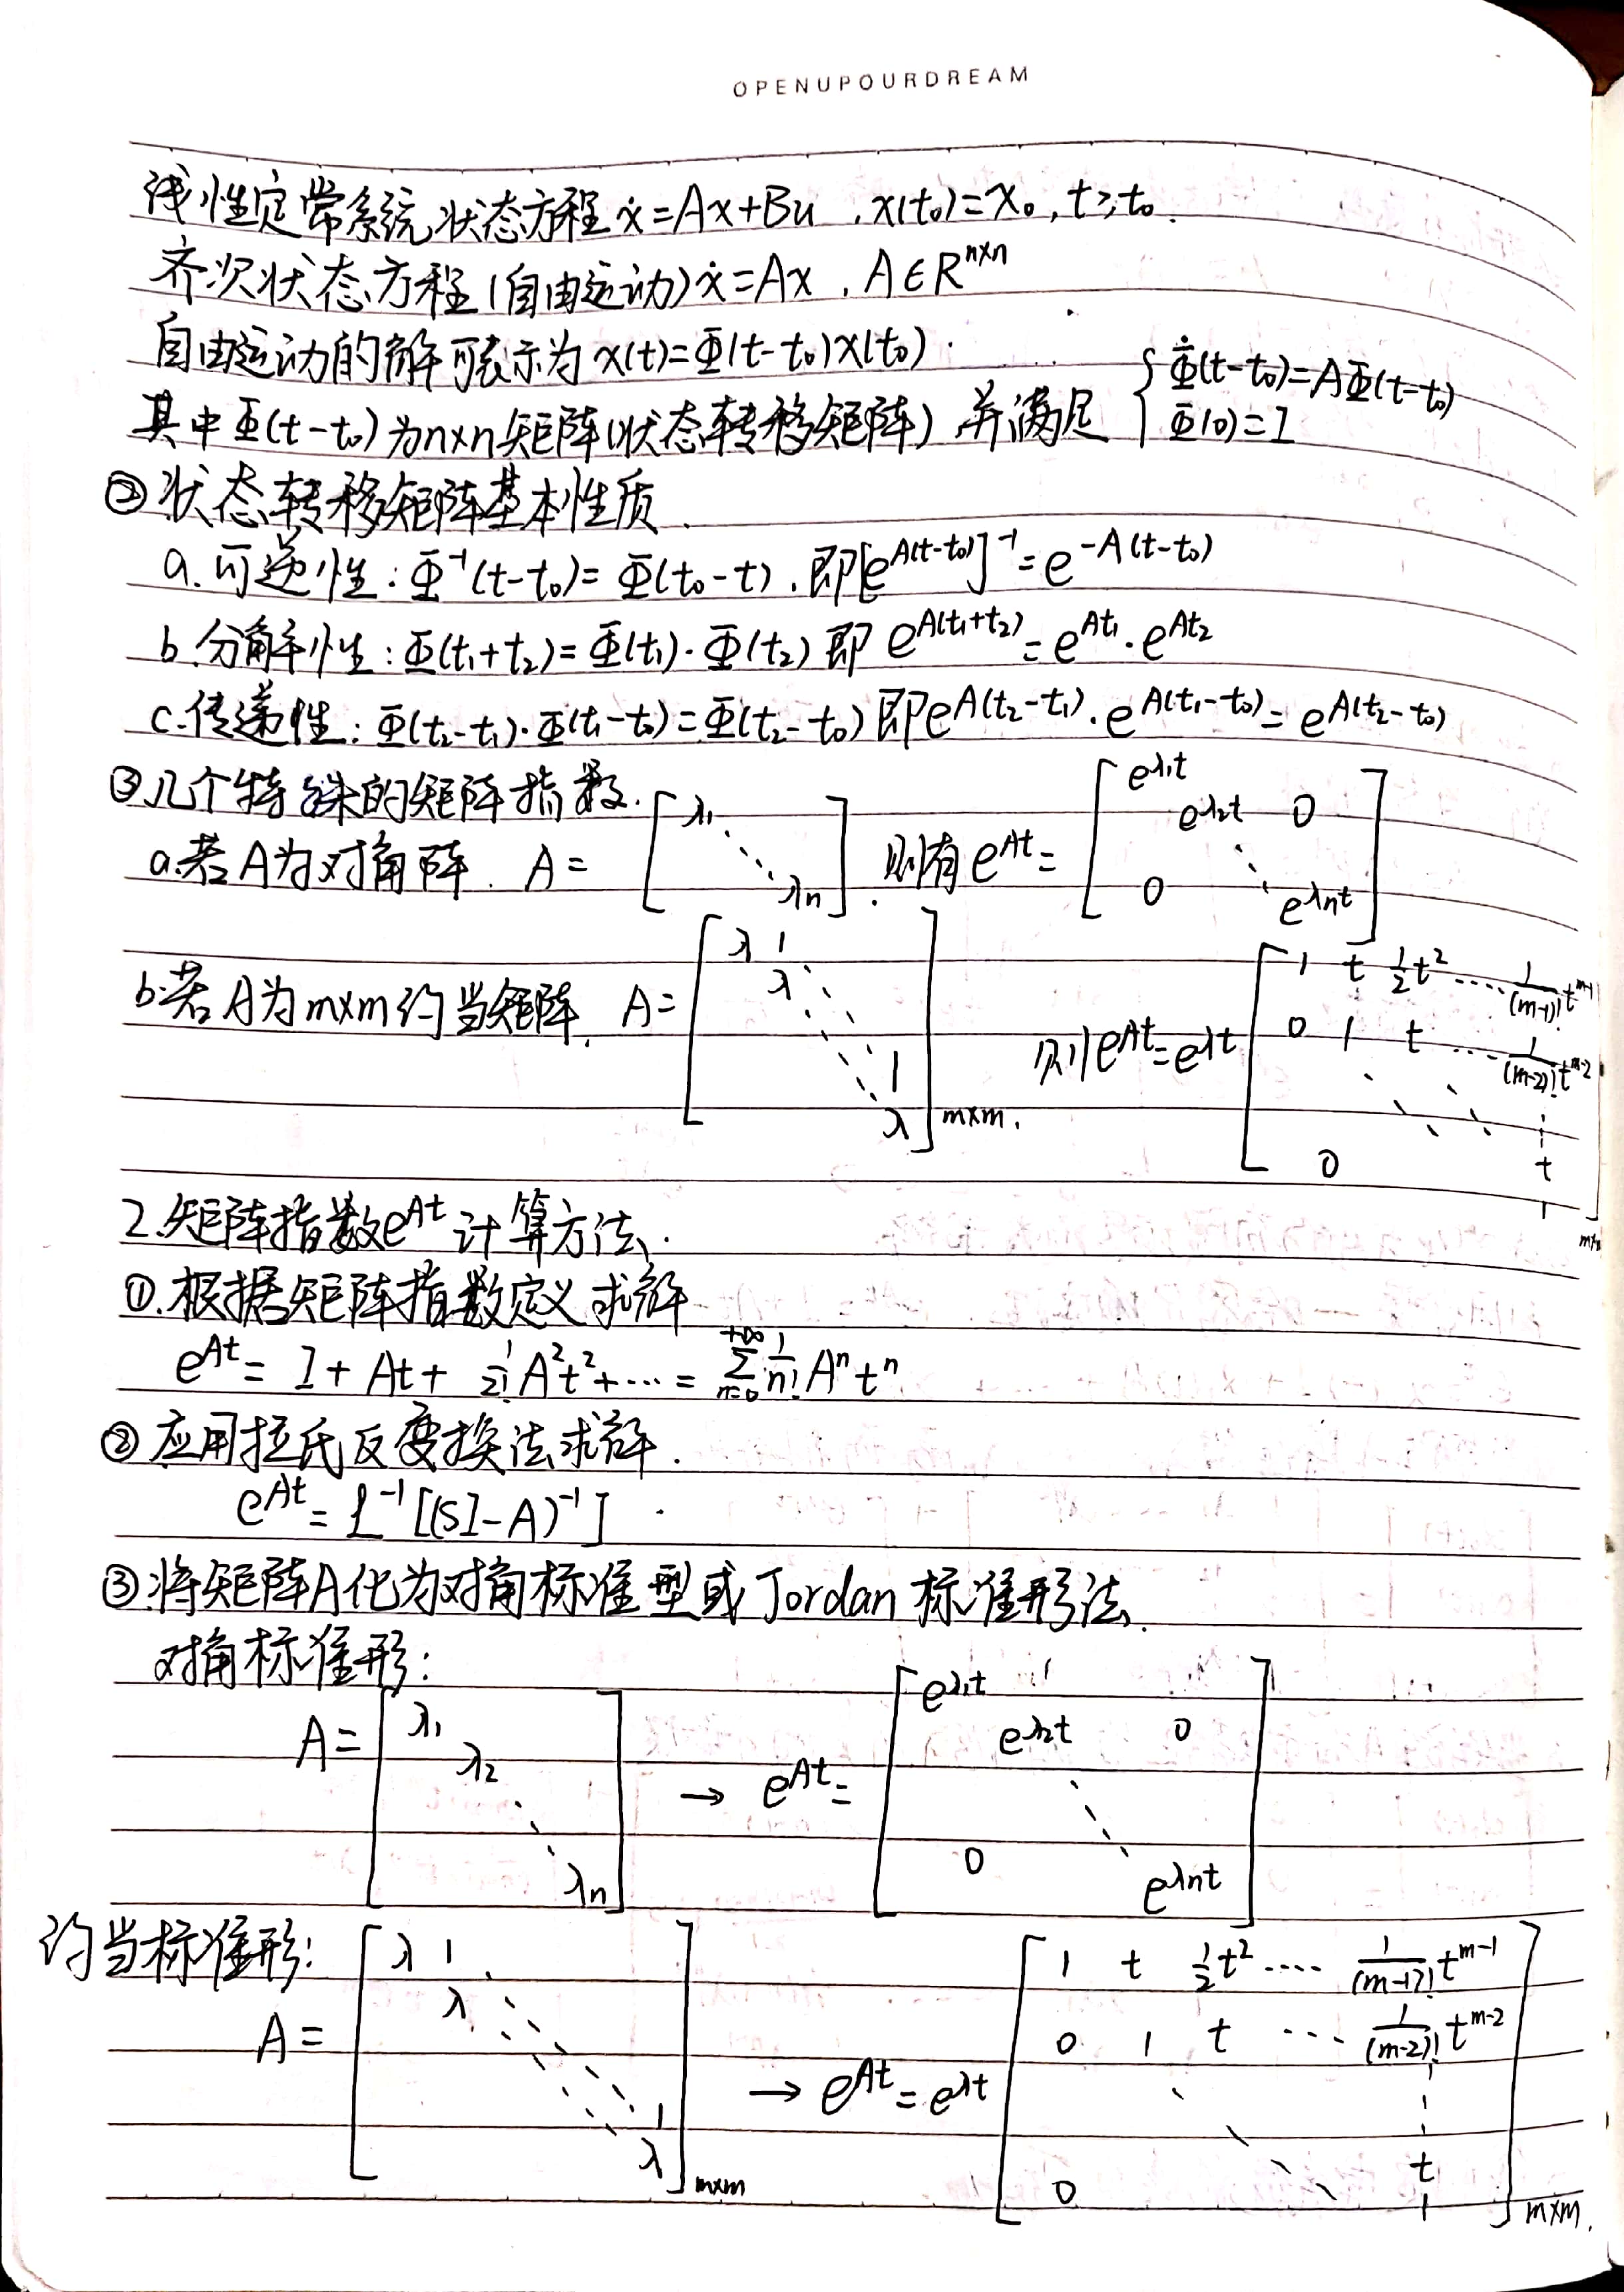 OPENUPOURDREAM
线性定常系统状态方程 ẋ=Ax+Bu , x(t₀)=x₀, t≥t₀.
齐次状态方程(自由运动) ẋ=Ax , A∈Rⁿˣⁿ
自由运动的解可表示为 x(t)=Φ(t-t₀)x(t₀).
其中Φ(t-t₀)为n×n矩阵(状态转移矩阵) 并满足 { Φ̇(t-t₀)=AΦ(t-t₀)
Φ(0)=I
②状态转移矩阵基本性质.
a.可逆性: Φ⁻¹(t-t₀)=Φ(t₀-t).即[e^{A(t-t₀)}]⁻¹=e^{-A(t-t₀)}
b.分解性: Φ(t₁+t₂)=Φ(t₁)·Φ(t₂) 即 e^{A(t₁+t₂)}=e^{At₁}·e^{At₂}
c.传递性: Φ(t₂-t₁)·Φ(t₁-t₀)=Φ(t₂-t₀) 即e^{A(t₂-t₁)}·e^{A(t₁-t₀)}=e^{A(t₂-t₀)}
③几个特殊的矩阵指数.
a.若A为对角阵. A= [λ₁ ⋱ λn]. 则有 e^{At}= [e^{λ₁t} e^{λ₂t} 0 ⋱ 0 e^{λnt}]
b.若A为m×m约当矩阵. A= [λ 1 λ ⋱ ⋱ 1 λ] m×m. 则e^{At}=e^{λt} [1 t ½t² ···· 1/(m-1)! t^{m-1}
0 1 t ···· 1/(m-2)! t^{m-2}
⋱ ⋱ ⋮
0 t
1]
2.矩阵指数e^{At}计算方法.
①.根据矩阵指数定义求解
e^{At}= I + At + 1/2! A²t²+···= Σ_{n=0}^{+∞} 1/n! Aⁿtⁿ
②应用拉氏反变换法求解.
e^{At}=L⁻¹[(SI-A)⁻¹]
③.将矩阵A化为对角标准型或Jordan标准形法.
对角标准形:
A= [λ₁ λ₂ ⋱ λn] → e^{At}= [e^{λ₁t} e^{λ₂t} 0 ⋱ 0 e^{λnt}]
约当标准形:
A= [λ 1 λ ⋱ ⋱ 1 λ] m×m → e^{At}=e^{λt} [1 t ½t² ···· 1/(m-1)! t^{m-1}
0 1 t ··· 1/(m-2)! t^{m-2}
⋱ ⋮
t
0 1] m×m.